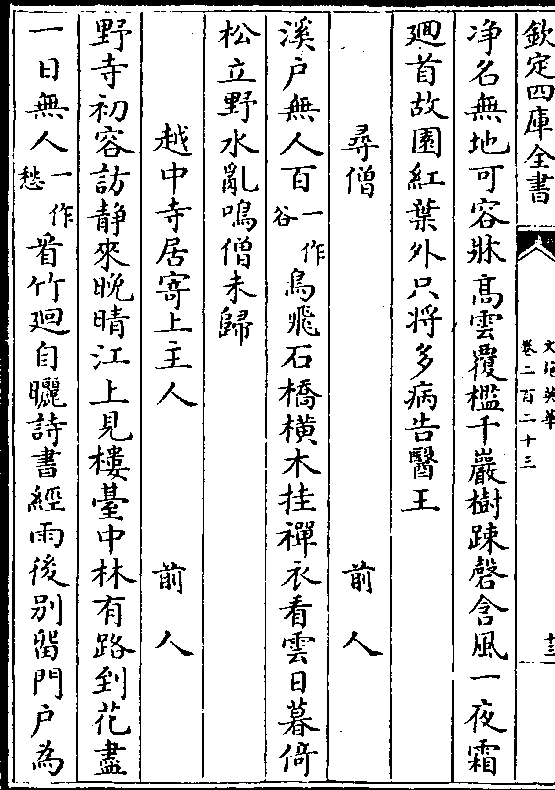 欽定四庫全書
文苑英華
卷二百二十三
十三
净名無地可容牀高雲覆檻千巖樹踈磬含風一夜霜
廻首故園紅葉外只将多病告醫王
尋僧
前人
溪戶無人百一作谷鳥飛石橋横木挂禪衣看雲日暮倚
松立野水亂鳴僧未歸
越中寺居寄上主人
前人
野寺初容訪静來晩晴江上見樓臺中林有路到花盡
一日無人一作愁㸔竹廻自曬詩書經雨後別留門戶為